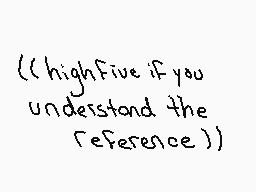 ((highfive if you
understand the
reference))